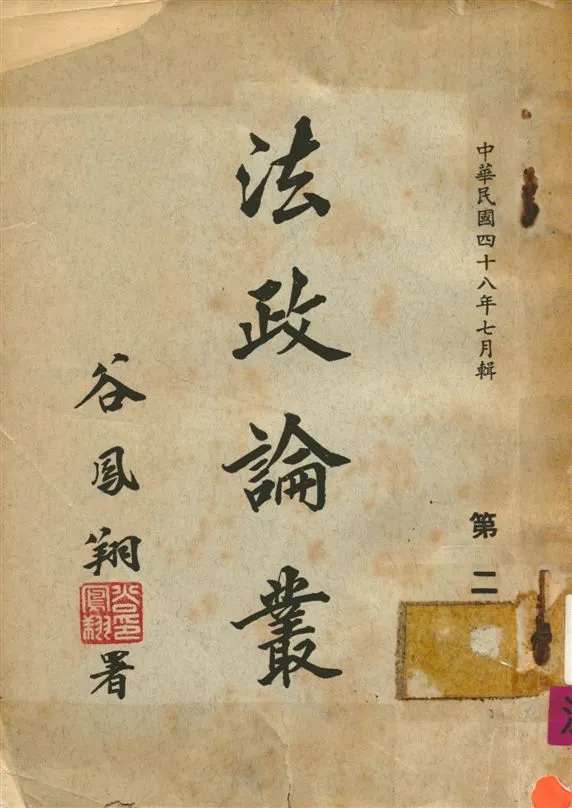 中華民國四十八年七月輯
第二
法政論叢
谷鳳翔署